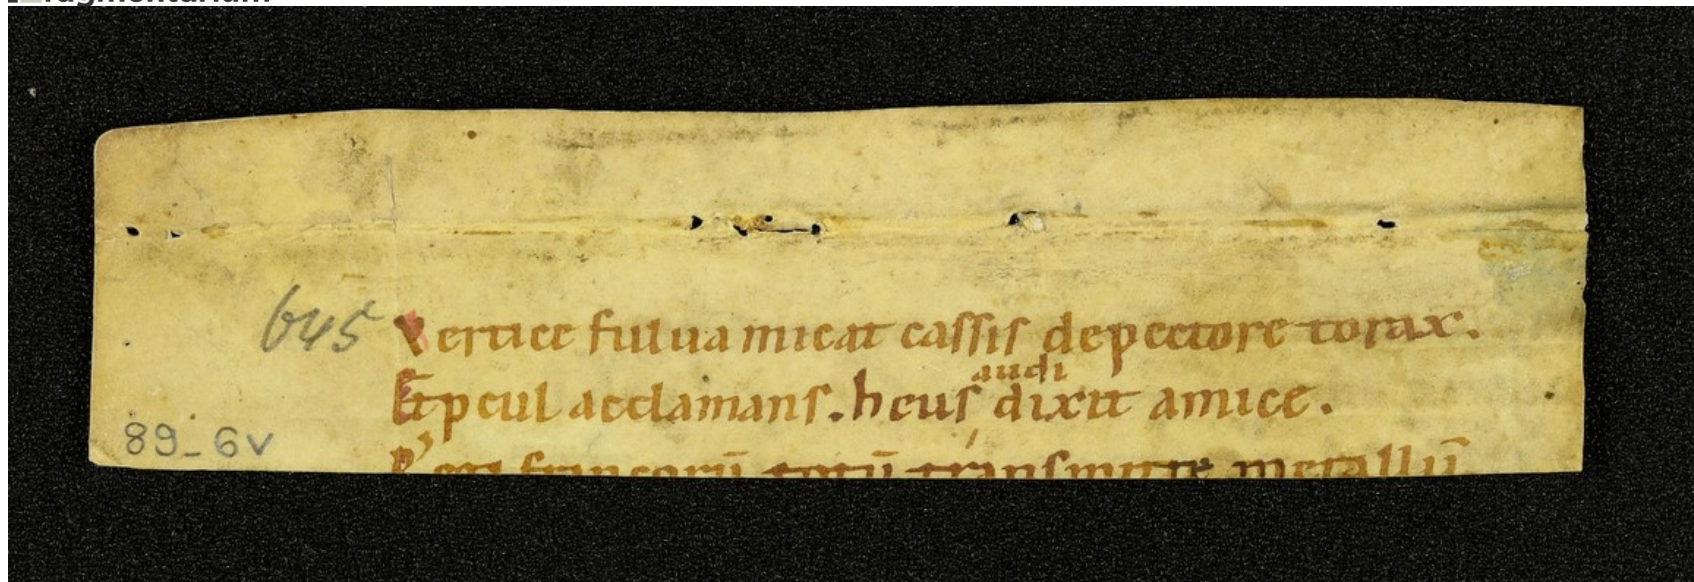 645 Vertice fulua micat cassis depectore torax.
audi
Et pcul acclamans. heus dixit amice.
francorū totū transmitte metallū
89_6v